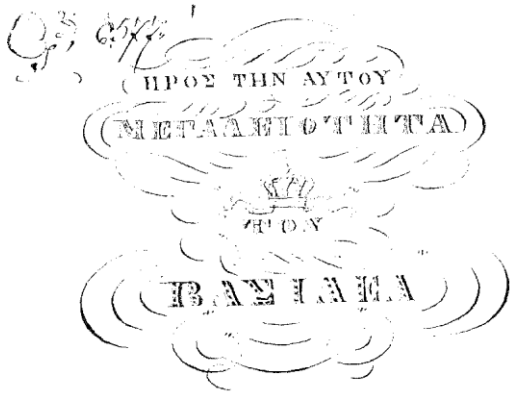 ΠΡΟΣ ΤΗΝ ΑΥΤΟΥ
ΜΕΓΑΛΕΙΟΤΗΤΑ
ΤΟΝ
ΒΑΣΙΛΕΑ